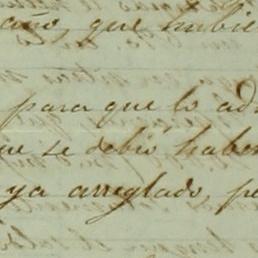 año, que hubie
para que lo ad
ue se debió haber
ya arreglado, pe